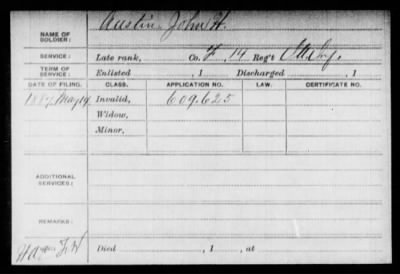 NAME OF SOLDIER: Austin, John H.
SERVICE: Late rank, Co. F, 14 Reg't
TERM OF SERVICE: Enlisted , 1 Discharged , 1
DATE OF FILING. CLASS. APPLICATION NO. LAW. CERTIFICATE NO.
1887, May 14, Invalid, 609.625
Widow,
Minor,
ADDITIONAL SERVICES:
REMARKS:
Died , 1 , at